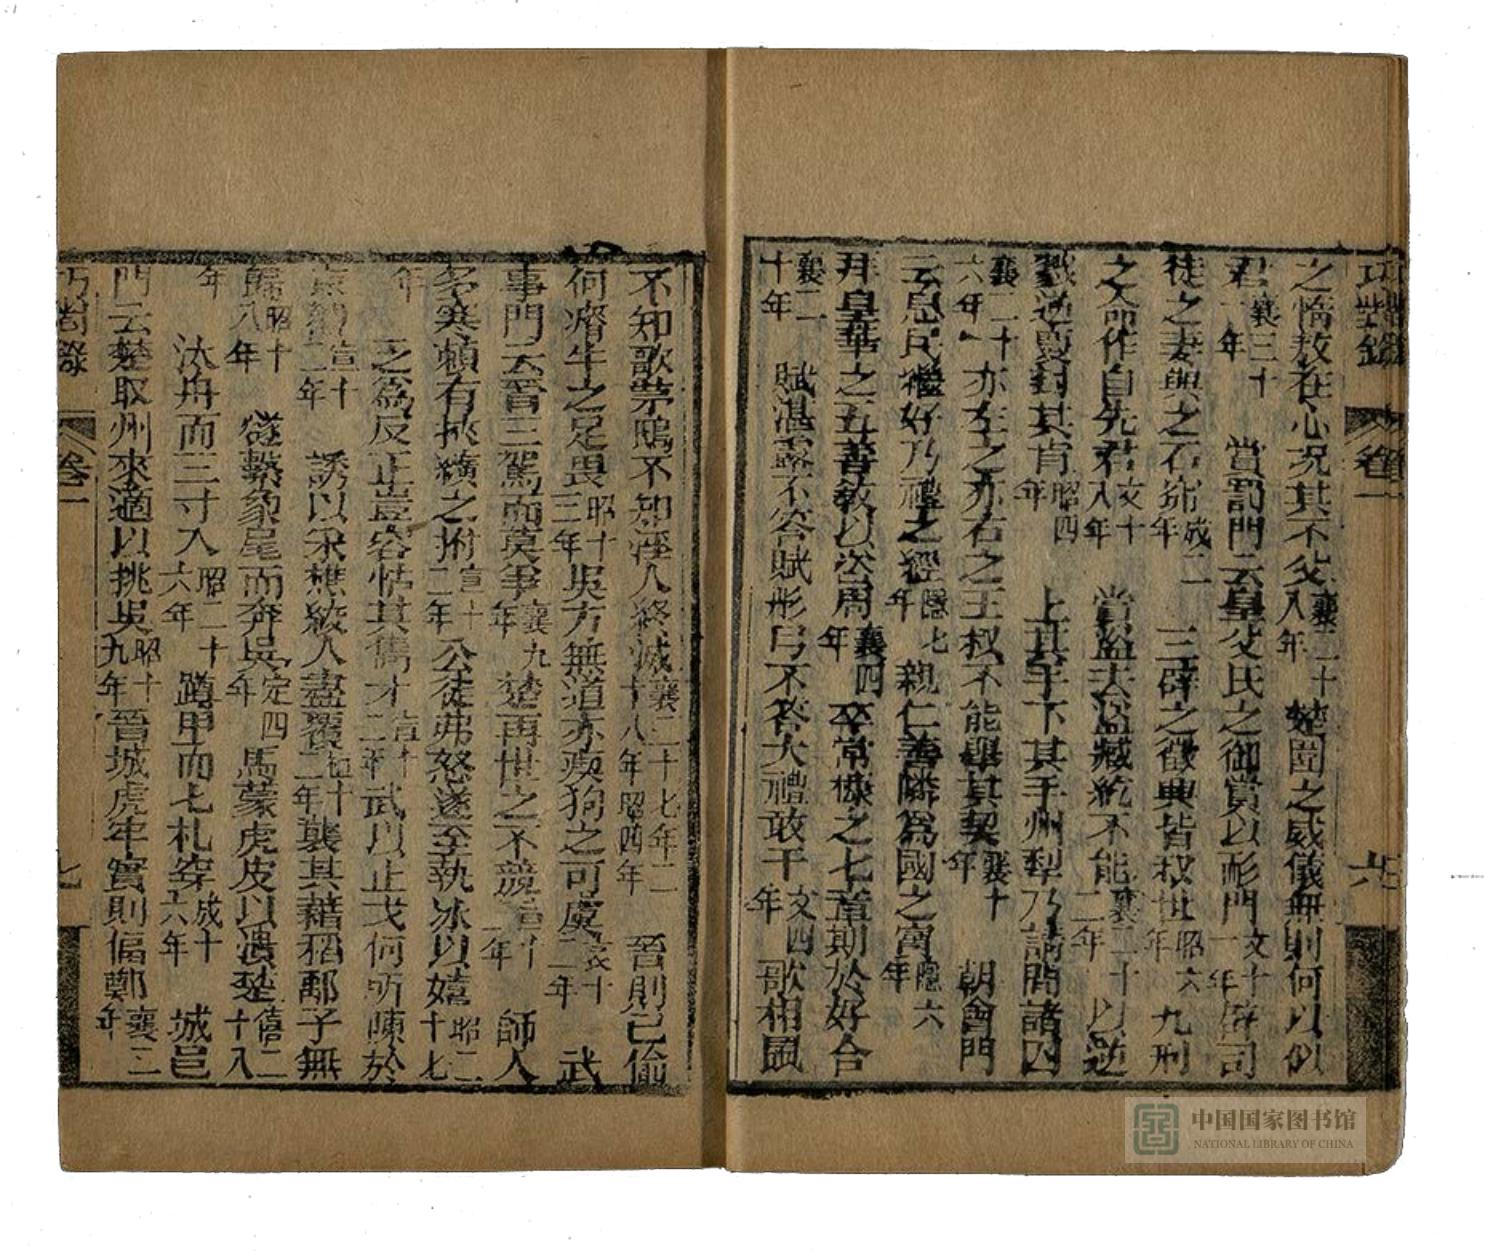 巧對錄 卷一 六
之惰敖在心況其不父襄二十八年 楚圍之威儀無則何以似
君襄三十一年 賞罰門云皇父氏之御賞以耏門文十一年辟司
徒之妻與之石窌成二年 三辟之徵典皆叔世昭六年 九刑
之命作自先君文十八年 當盜去盜藏紇不能襄二十二年 以逆
戮逆賈對其肯昭四年 上其手下其手州犁乃請問諸囚
襄二十六年 亦左之亦右之王叔不能舉其契襄十年 朝會門
云息民禮好乃禮之經隱七年 親仁善隣爲國之寶隱六年
拜皇華之五善敎以咨周襄四年 卒常棣之七章期於好合
襄二十年 賦湛露不答賦彤弓不答大禮敢干文四年 歌相鼠
不知歌茅鴟不知涇人終滅襄二十七年二十八年昭四年 晉則已偷
何瘠牛之足畏昭十三年 吳方無道亦瘈狗之可虞哀十二年 武
事門云晉三駕而莫爭襄九年 楚再世之不競宣十一年 師人
多寒賴有挾纊之拊宣十二年 公徒弗怒遂至執冰以嬉昭二十七
年 乏爲反正豈容怙其雋才宣十二年 武以止戈何所陳於
京觀宣十二年 誘以采樵絞人盡覆 襲其藉稻鄅子無
歸昭十八年 燧繫象尾而奔吳定四年 馬蒙虎皮以潰楚僖二十八
年 汰舟而三寸入昭二十六年 蹲甲而七札穿成十六年 城邑
門云楚取州來適以挑吳昭十九年 晉城虎牢實則偪鄭襄二年
巧對錄 卷一 七
中国国家图书馆
NATIONAL LIBRARY OF CHINA